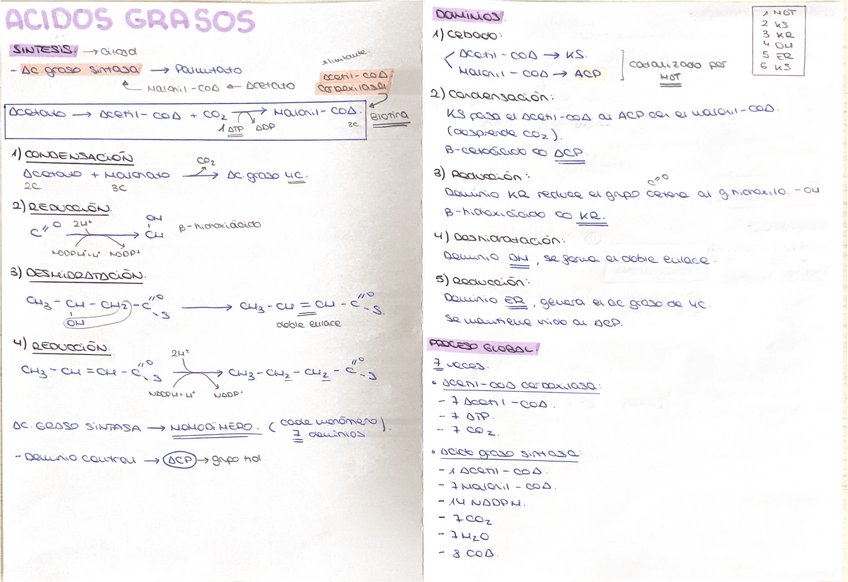 ACIDOS GRASOS
SINTESIS → citosol
- Ac graso sintasa → Palmitato
Malonil-COA ← Acetato
limitante
Acetil-COA
carboxilasa
Acetato → Acetil-COA + CO2 → Malonil-COA.
1 ATP ADP
3C
Biotina
1) CONDENSACIÓN
Acetato + Malonato → Ac graso 4C.
CO2
2C 3C
2) REDUCCIÓN
2H+
C=O → OH CH
β-hidroxiácido
NADPH+H+ NADP+
3) DESHIDRATACIÓN.
CH3-CH-CH2-C=O-S → CH3-CH=CH-C=O-S.
OH
doble enlace
4) REDUCCIÓN.
2H+
CH3-CH=CH-C=O-S → CH3-CH2-CH2-C=O-S
NADPH+H+ NADP+
AC. GRASO SINTASA → HOMODÍMERO. (cada monómero 7 dominios).
- Dominio central → ACP → grupo tiol
DOMINIOS.
1 MAT
2 KS
3 KR
4 DH
5 ER
6 KS
1) Cebado:
Acetil-COA → KS.
Malonil-COA → ACP
catalizado por
MAT
2) Condensación:
KS pasa el Acetil-COA al ACP con el Malonil-COA.
(desprende CO2).
β-cetoácido ∞ ACP.
3) Reducción:
C=O
Dominio KR reduce el grupo cetona al g. hidroxilo. -OH
β-hidroxiácido ∞ KR.
4) Deshidratación:
Dominio DH, se forma el doble enlace.
5) Reducción:
Dominio ER, genera el ac graso de 4C.
Se mantiene unido al ACP.
PROCESO GLOBAL:
7 veces.
• Acetil-COA carboxilasa:
- 7 Acetil-COA.
- 7 ATP.
- 7 CO2.
• Acido graso sintasa:
- 1 Acetil-COA.
- 7 Malonil-COA.
- 14 NADPH.
- 7 CO2
- 7 H2O
- 8 COA.